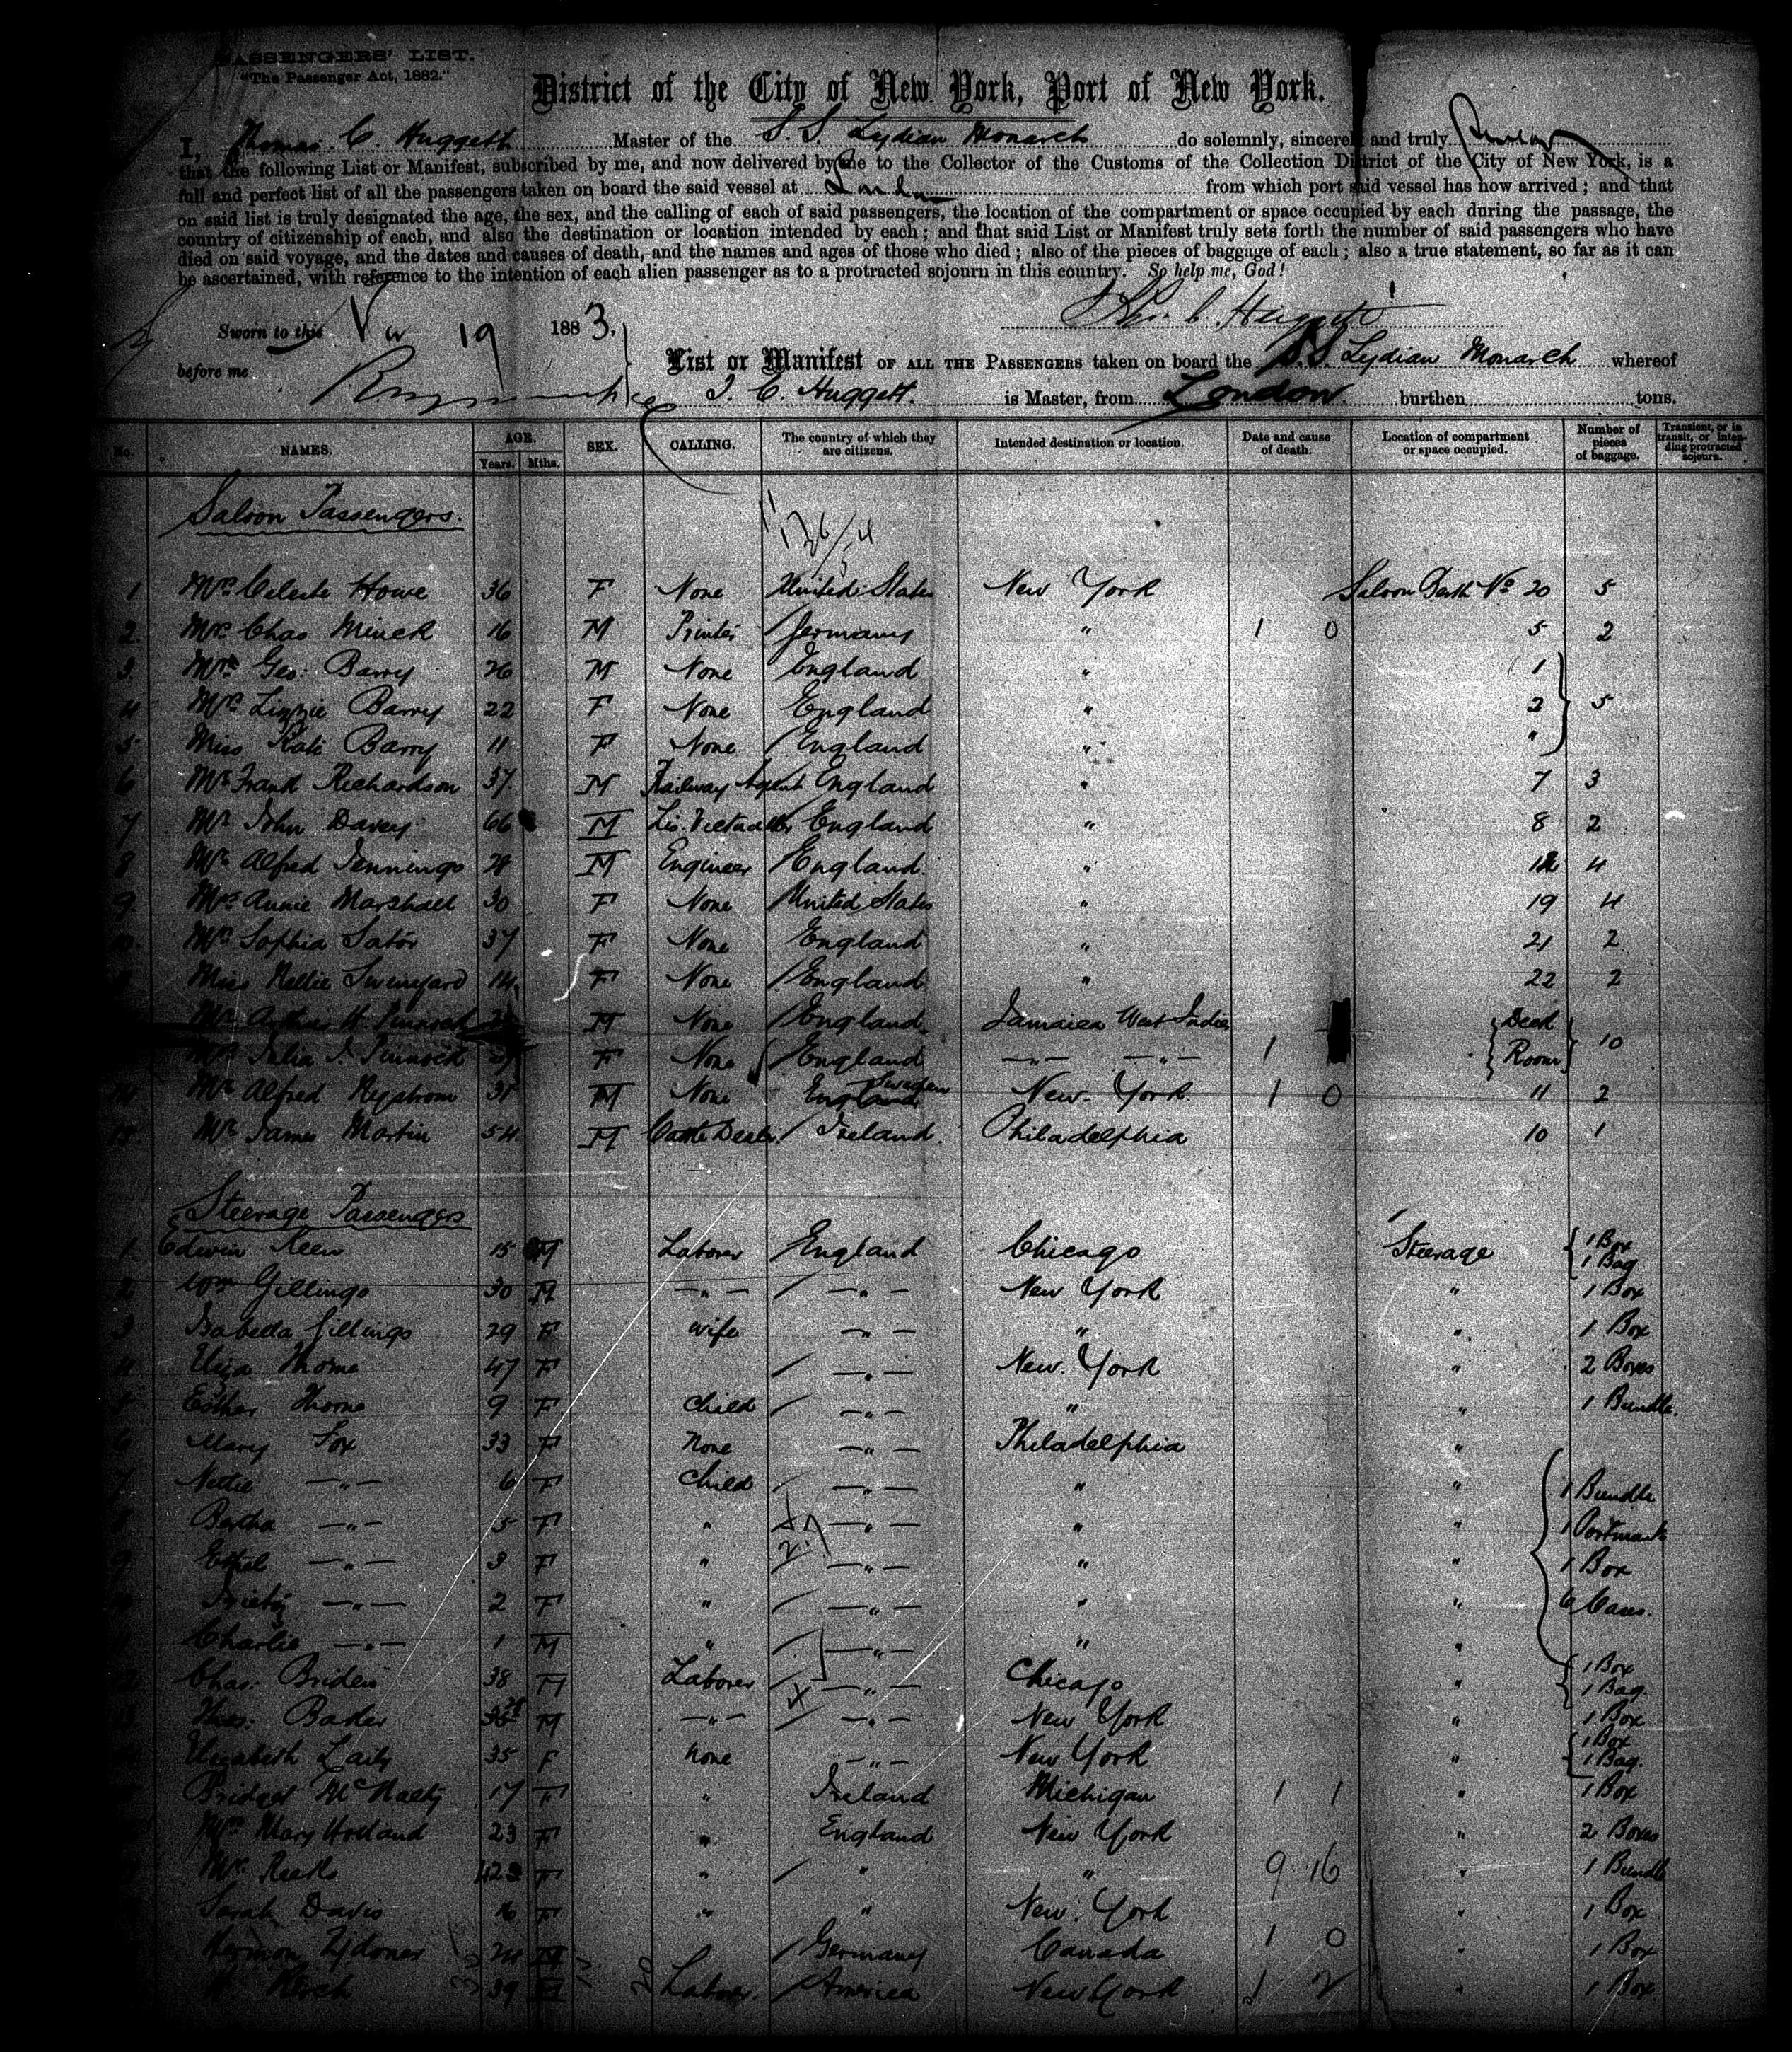 PASSENGERS' LIST.
"The Passenger Act, 1882."
District of the City of New York, Port of New York.
I, Thomas C Huggett Master of the S. S. Lydian Monarch do solemnly, sincerely and truly
that the following List or Manifest, subscribed by me, and now delivered by me to the Collector of the Customs of the Collection District of the City of New York, is a
full and perfect list of all the passengers taken on board the said vessel at London from which port said vessel has now arrived; and that
on said list is truly designated the age, the sex, and the calling of each of said passengers, the location of the compartment or space occupied by each during the passage, the
country of citizenship of each, and also the destination or location intended by each; and that said List or Manifest truly sets forth the number of said passengers who have
died on said voyage, and the dates and causes of death, and the names and ages of those who died; also of the pieces of baggage of each; also a true statement, so far as it can
be ascertained, with reference to the intention of each alien passenger as to a protracted sojourn in this country. So help me, God!
Thos. C. Huggett
Sworn to this 19 1883.
List or Manifest OF ALL THE PASSENGERS taken on board the S.S. Lydian Monarch whereof
before me
T. C. Huggett. is Master, from London burthen tons.
No. NAMES. AGE. Years. Mths. SEX. CALLING. The country of which they are citizens. Intended destination or location. Date and cause of death. Location of compartment or space occupied. Number of pieces of baggage. Transient, or in transit, or intending protracted sojourn.
Saloon Passengers.
1 Mrs Celeste Howe 36 F None United States New York Saloon Berth No 20 5
2 Mr Chas Minck 16 M Printer Germany " 1 0 5 2
3 Mr Geo: Barry 26 M None England " 1
4 Mrs Lizzie Barry 22 F None England " 2 5
5 Miss Kate Barry 11 F None England " "
6 Mr Frank Richardson 37 M Railway Agent England " 7 3
7 Mr John Davey 66 M Lic. Victualler England " 8 2
8 Mr Alfred Jennings M Engineer England " 12 4
9 Mrs Annie Marshall 30 F None United States " 19 4
10 Mrs Sophia Sator 37 F None England " 21 2
Miss Nellie Swinyard 14 F None England " 22 2
Mr Arthur H. M None England Jamaica West Indies Deck
Mrs Julia F None England —"— —"— 1 Room 10
14 Mr Alfred Nystrom 31 M None England Sweden New York 1 0 11 2
15 Mr James Martin 54 M Cattle Dealer Ireland Philadelphia 10 1
Steerage Passengers
1 Edwin Keen 15 M Laborer England Chicago Steerage 1 Box 1 Bag
2 Wm Gillings 30 M —"— —"— New York " 1 Box
3 Isabella Gillings 29 F wife —"— " " 1 Box
4 Eliza Thorne 47 F —"— New York " 2 Boxes
5 Esther Thorne 9 F Child —"— " " 1 Bundle.
6 Mary Fox 33 F None —"— Philadelphia "
7 Nettie —"— 6 F Child —"— " " 1 Bundle
8 Bertha —"— 5 F " —"— " " 1 Portmant
9 Ethel —"— 3 F " —"— " " 1 Box
—"— 2 F " —"— " " 6 Cases.
Charlie —"— 1 M " —"— " "
Chas. Briden 38 M Laborer —"— Chicago " 1 Box 1 Bag.
Thos. Baker M —"— —"— New York " 1 Box
Elizabeth 35 F None —"— New York " 1 Box 1 Bag.
Bridget McNally 17 F " Ireland Michigan 1 1 " 1 Box
Mrs Mary Holland 23 F " England New York " 2 Boxes
Mrs Reeks 42 F " " " 9 16 " 1 Bundle
Sarah Davis 16 F " " New York " 1 Box
24 M Germany Canada 1 0 " 1 Box
39 M Laborer. America New York 1 2 " 1 Box